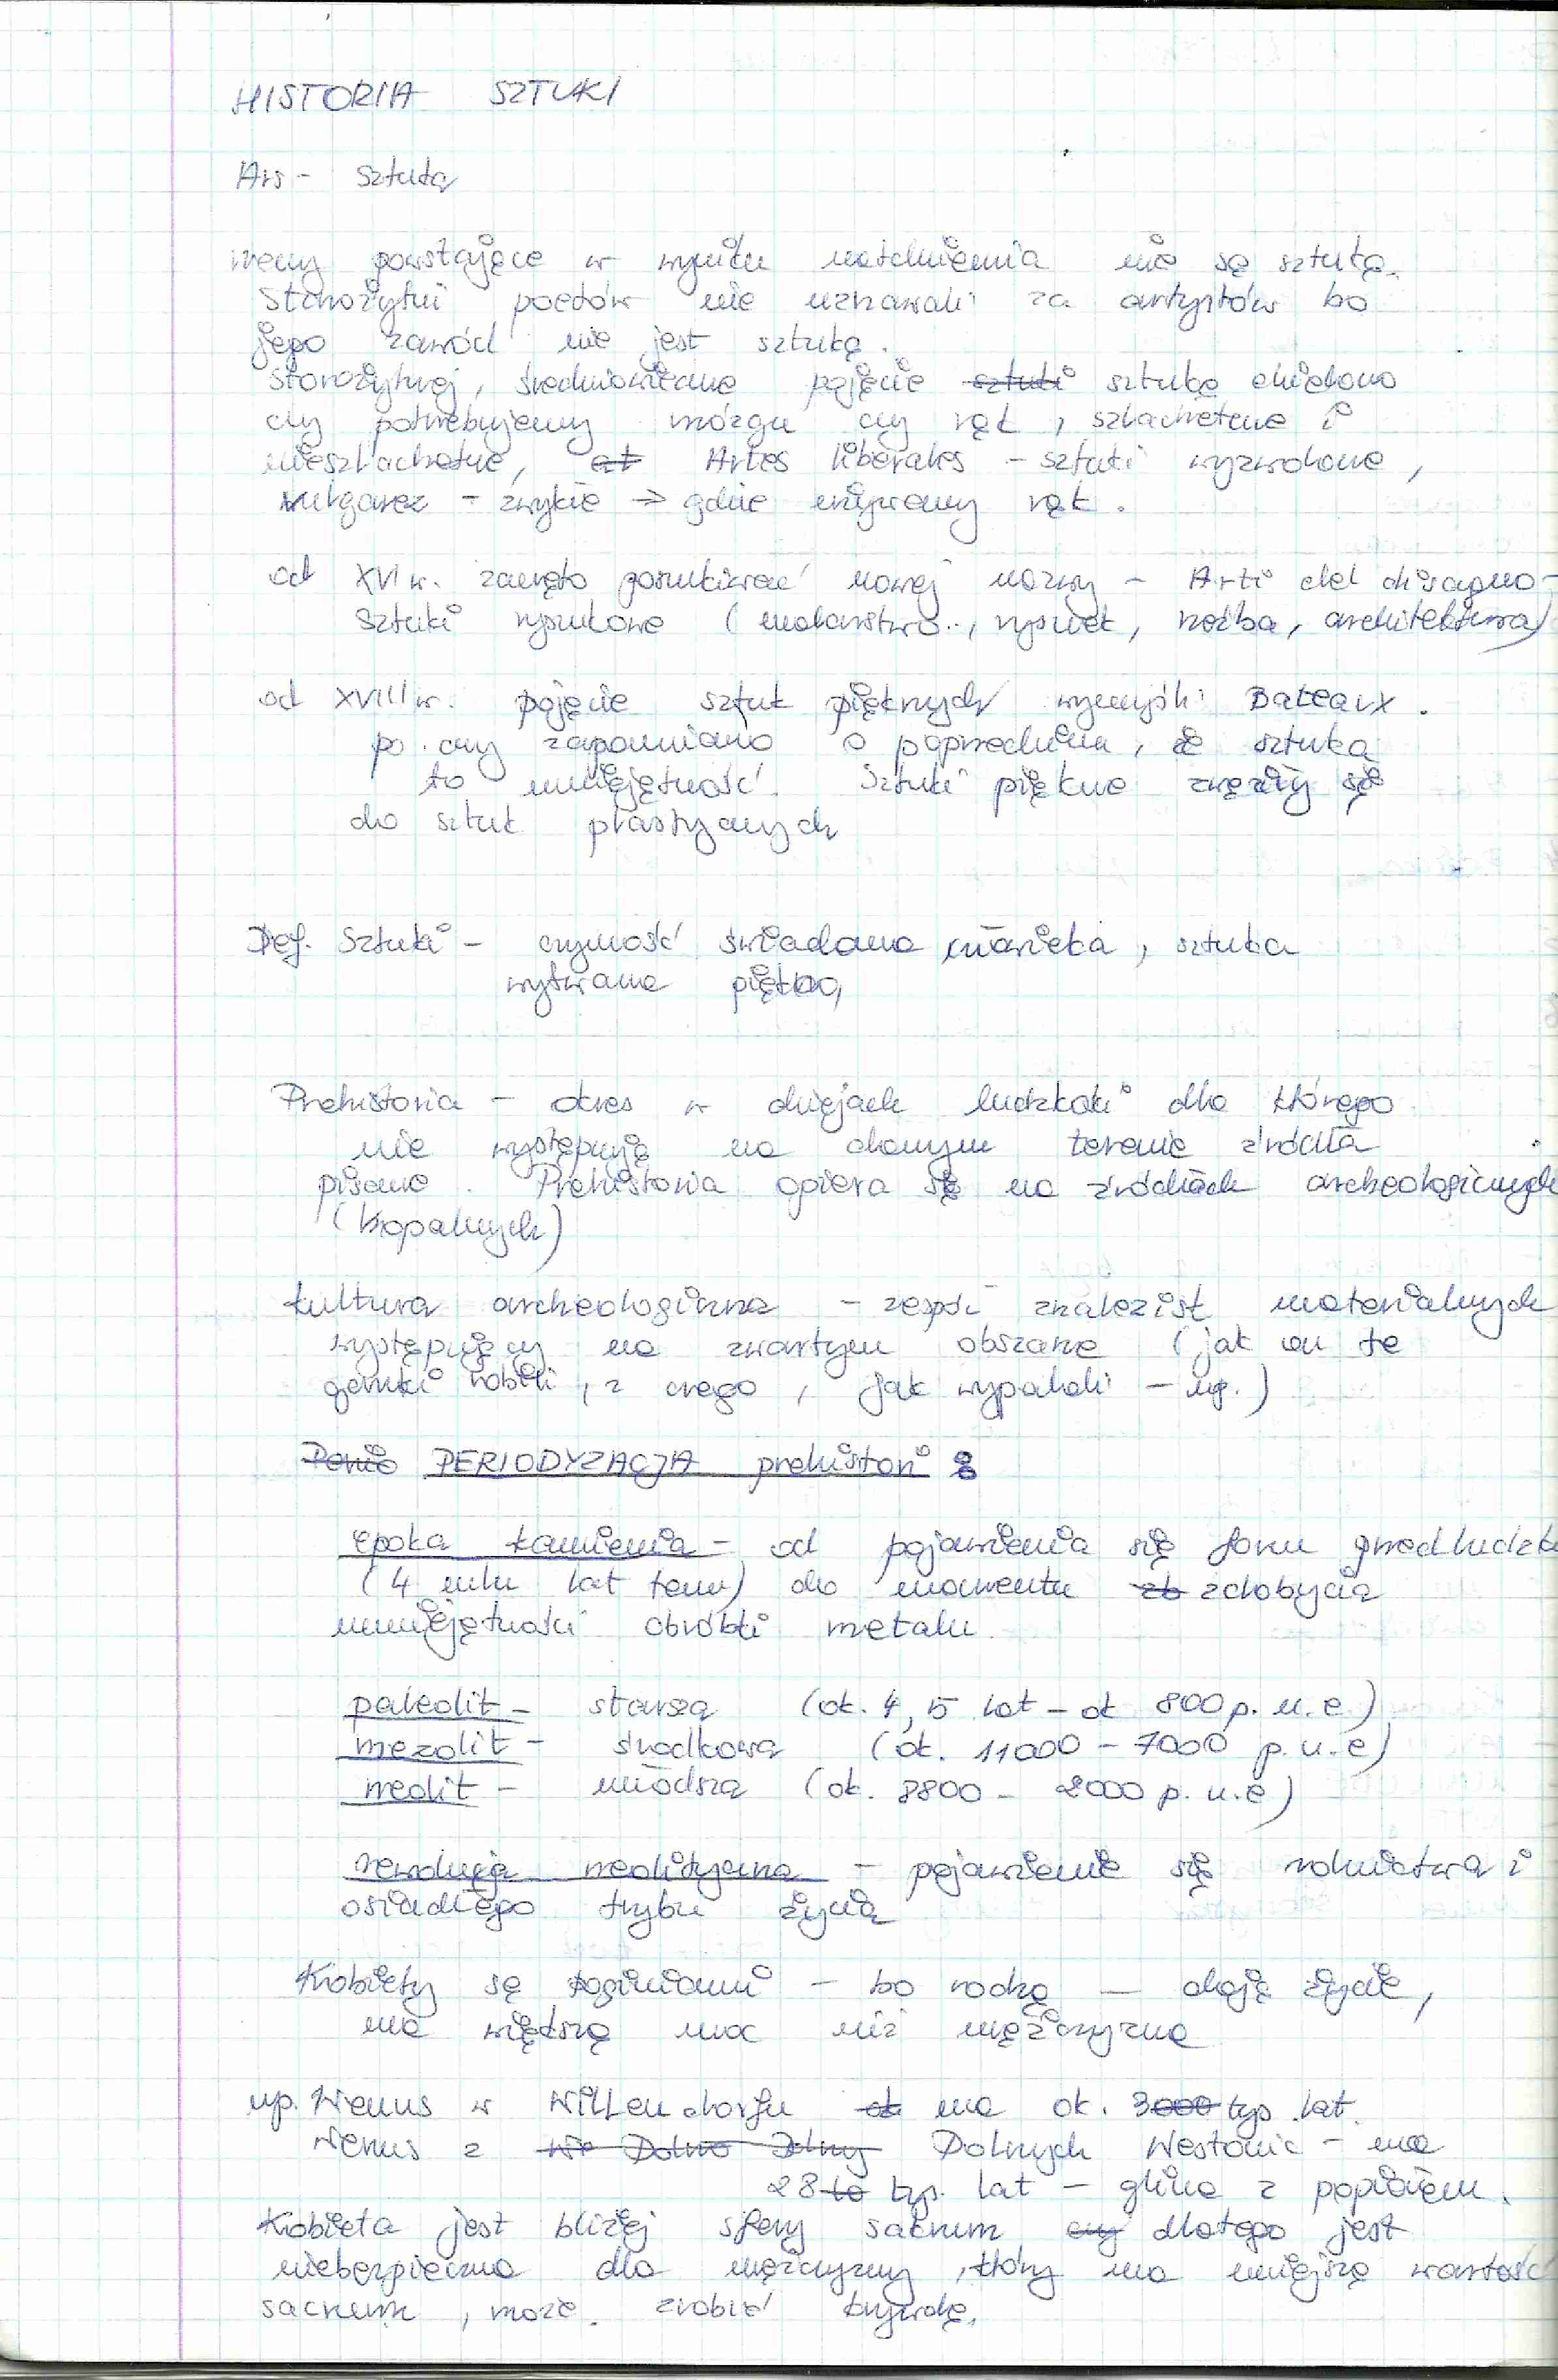 HISTORIA SZTUKI
Ars - sztuka
rzeczy powstające w wyniku natchnienia nie są sztuką.
Starożytni poetów nie uznawali za artystów bo
jego zawód nie jest sztuką.
Starożytnej, średniowieczne pojęcie sztuki sztukę dzielono
czy potrzebujemy mózgu czy rąk, szlachetne i
nieszlachetne, at Artes liberales - sztuki wyzwolone,
vulgarez - zwykłe → gdzie używamy rąk.
od XVI w. zaczęto poszukiwać nowej nazwy - Arti del disegno -
sztuki rysunkowe (malarstwo.., rysunek, rzeźba, architektura)
od XVIII w. pojęcie sztuk pięknych wymyślił Bateaux.
po czy zapomniano o poprzednim, że sztuka
to umiejętność. Sztuki piękne zwęziły się
do sztuk plastycznych
Def. Sztuki - czynność świadoma człowieka, sztuka
wytwarza piękno,
Prehistoria - okres w dziejach ludzkości dla którego
nie występują na danym terenie źródła
pisane. Prehistoria opiera się na źródłach archeologicznych
(kopalnych)
kultura archeologiczna - zespół znalezisk materialnych
występujący na zwartym obszarze (jak on te
garnki robili, z czego, jak wypalali - np.)
Perio PERIODYZACJA prehistorii :
epoka kamienia - od pojawienia się form przedludzk
(4 mln lat temu) do momentu zb zdobycia
umiejętności obróbki metalu.
paleolit - starsza (ok. 4,5 lat - ok 800 p. n. e)
mezolit - środkowa (ok. 11000 - 7000 p. n. e)
neolit - młodsza (ok. 8800 - 2000 p. n. e)
rewolucja neolityczna - pojawienie się rolnictwa i
osiadłego trybu życia
Kobiety są boginiami - bo rodzą — dają życie,
ma większą moc niż mężczyzna
np. Wenus w Willendorfu ok ma ok. 3000 tys. lat.
Wenus z We Dolno Dolny Dolnych Westonic - ma
28 to tys. lat - glina z popiołem.
Kobieta jest bliżej sfery sacrum czy dlatego jest
niebezpieczna dla mężczyzny, który ma mniejszą wartość
sacrum, może. zrobić krzywdę.